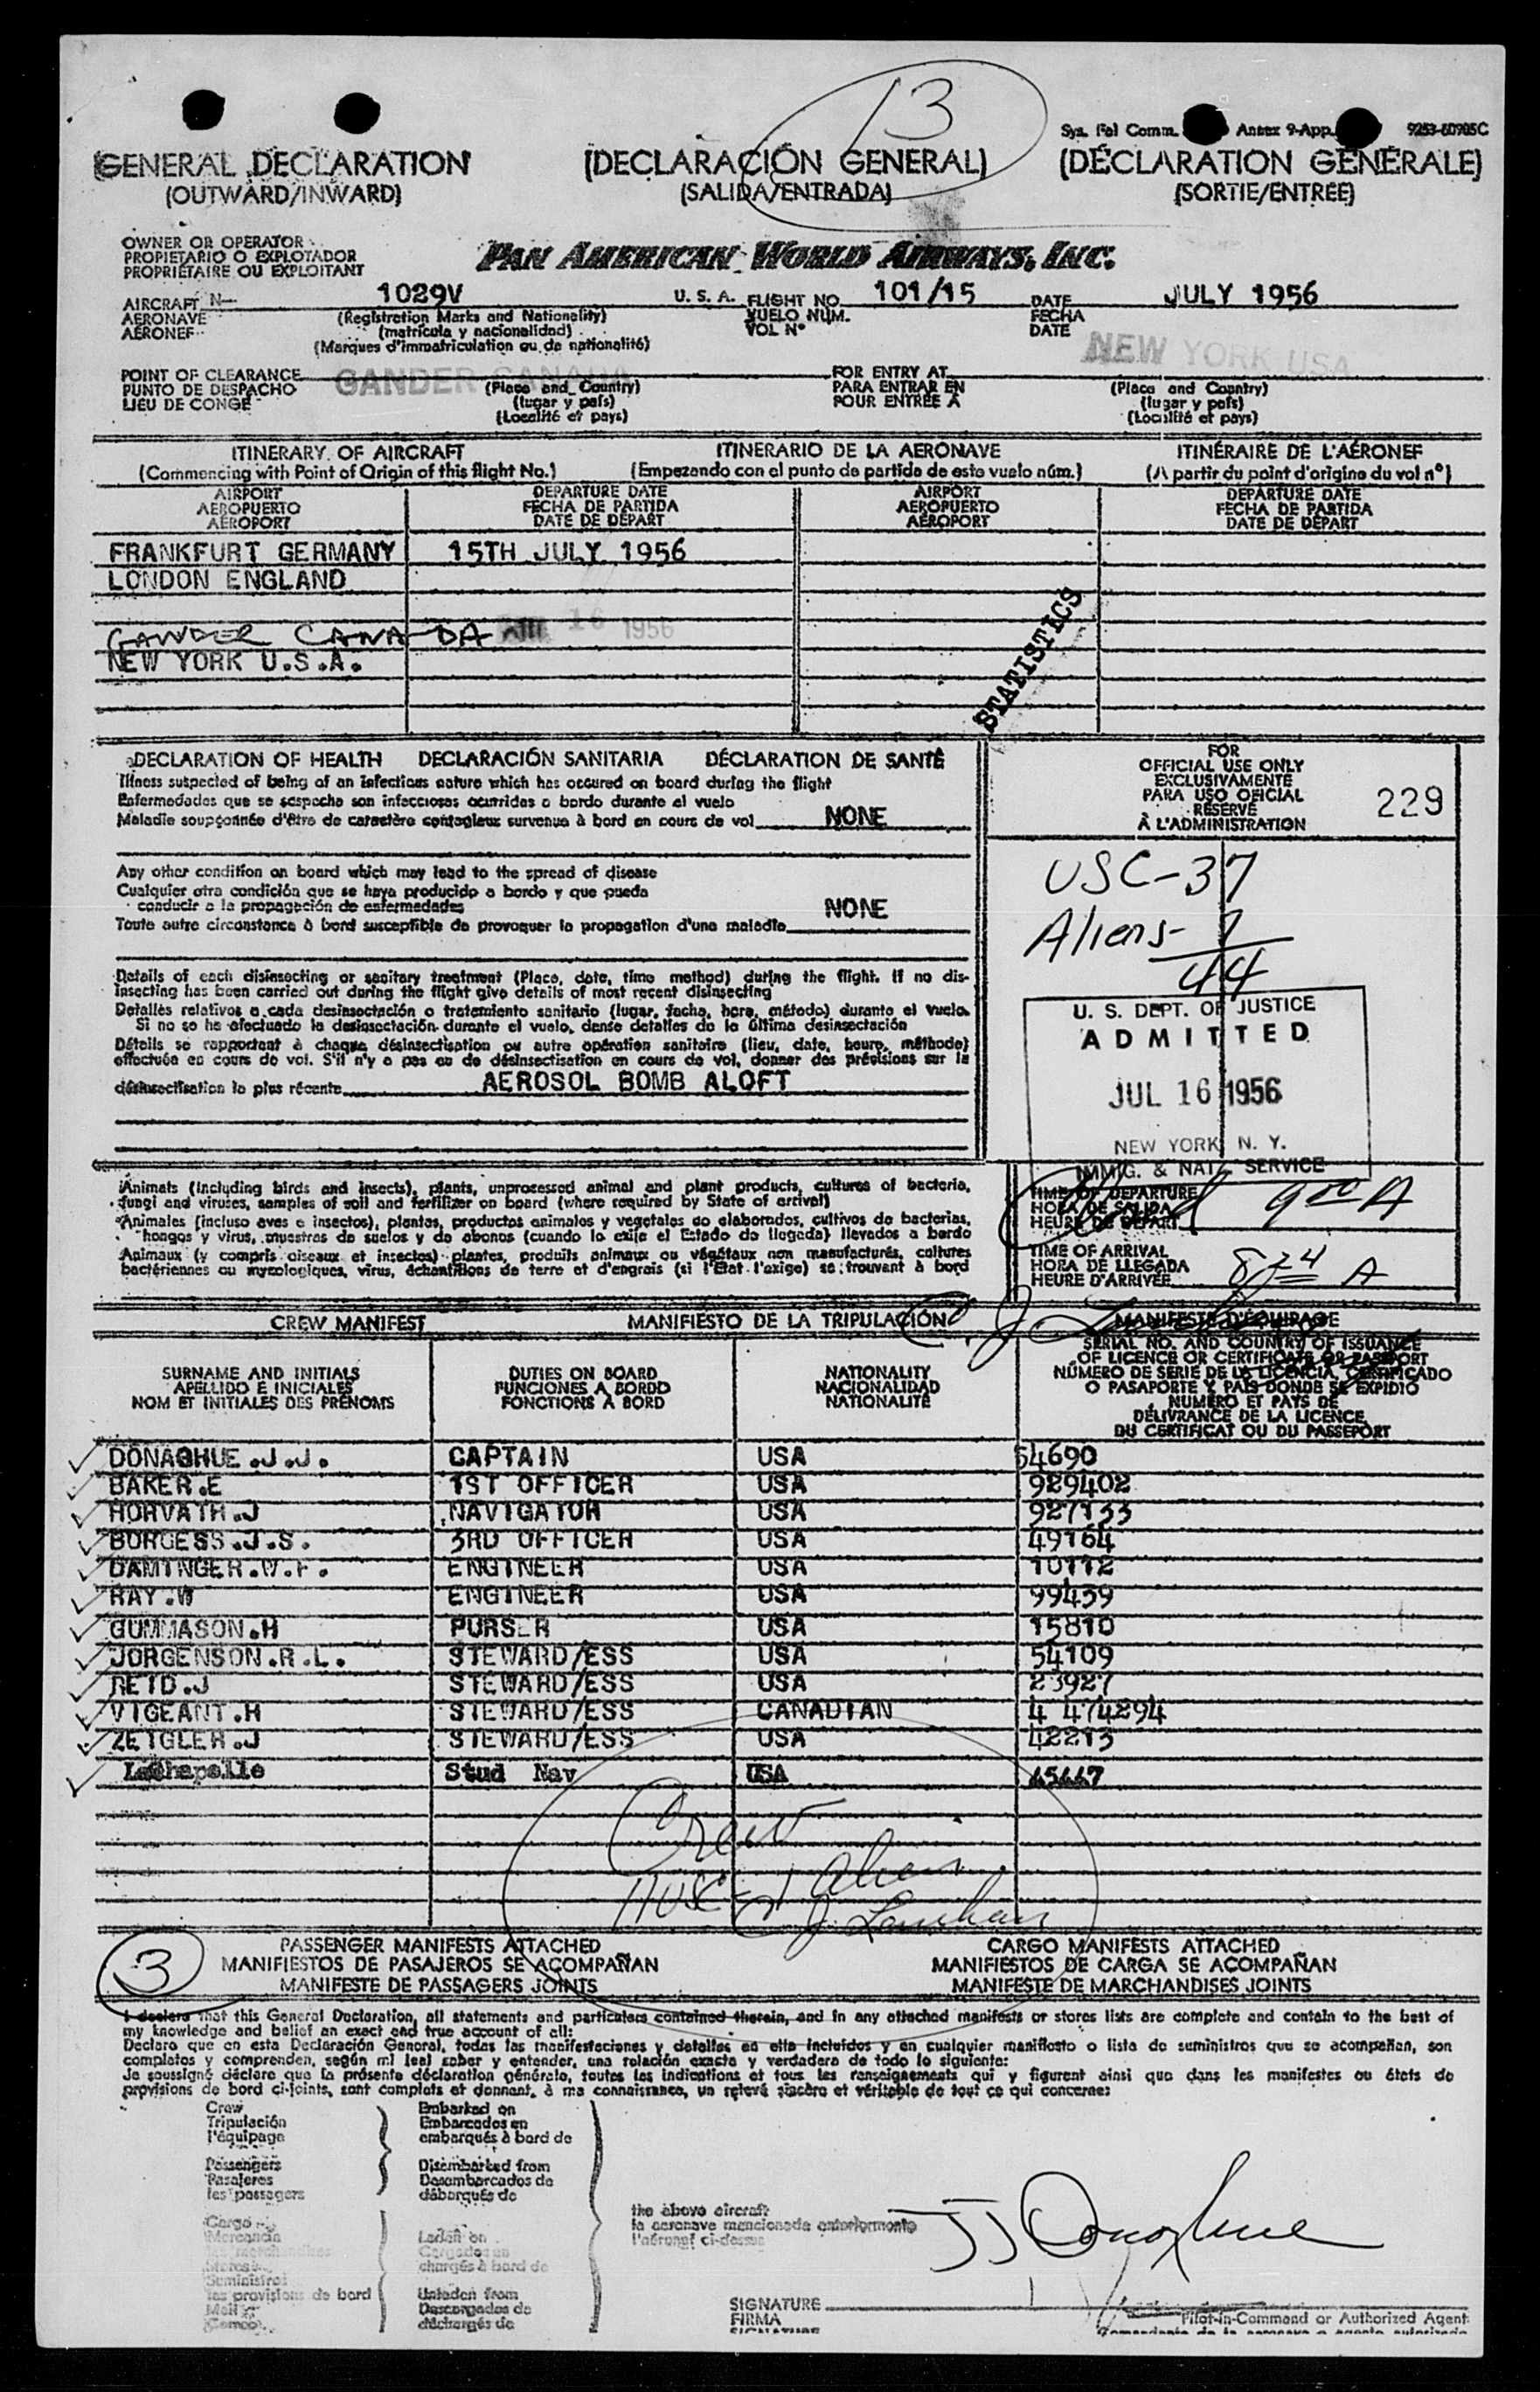 13
Sys. Fol Comm. Annex 9-App. 9253-60905C
GENERAL DECLARATION (DECLARACIÓN GENERAL) (DÉCLARATION GÉNÉRALE)
(OUTWARD/INWARD) (SALIDA/ENTRADA) (SORTIE/ENTREE)
OWNER OR OPERATOR
PROPIETARIO O EXPLOTADOR
PROPRIÉTAIRE OU EXPLOITANT
PAN AMERICAN WORLD AIRWAYS, INC.
AIRCRAFT N- 1029V U. S. A. FLIGHT NO. 101/15 DATE JULY 1956
AERONAVE (Registration Marks and Nationality) VUELO NUM. FECHA
AÉRONEF (matrícula y nacionalidad) VOL Nº DATE
(Marques d'immatriculation ou de nationalité)
NEW YORK USA
POINT OF CLEARANCE GANDER CANADA FOR ENTRY AT
PUNTO DE DESPACHO (Place and Country) PARA ENTRAR EN (Place and Country)
LIEU DE CONGÉ (lugar y país) POUR ENTRÉE À (lugar y país)
(Localité et pays) (Localité et pays)
ITINERARY OF AIRCRAFT ITINERARIO DE LA AERONAVE ITINÉRAIRE DE L'AÉRONEF
(Commencing with Point of Origin of this flight No.) (Empezando con el punto de partida de este vuelo núm.) (A partir du point d'origine du vol nº)
AIRPORT DEPARTURE DATE AIRPORT DEPARTURE DATE
AEROPUERTO FECHA DE PARTIDA AEROPUERTO FECHA DE PARTIDA
AÉROPORT DATE DE DÉPART AÉROPORT DATE DE DÉPART
FRANKFURT GERMANY 15TH JULY 1956
LONDON ENGLAND
GANDER CANADA JUL 16 1956
NEW YORK U.S.A.
STATISTICS
DECLARATION OF HEALTH DECLARACIÓN SANITARIA DÉCLARATION DE SANTÉ
Illness suspected of being of an infectious nature which has occured on board during the flight
Enfermedades que se sospecha son infecciosas ocurridas a bordo durante el vuelo
Maladie soupçonnée d'être de caractère contagieux survenue à bord en cours de vol NONE
Any other condition on board which may lead to the spread of disease
Cualquier otra condición que se haya producido a bordo y que pueda
conducir a la propagación de enfermedades
Toute autre circonstance à bord susceptible de provoquer la propagation d'une maladie NONE
Details of each disinsecting or sanitary treatment (Place, date, time method) during the flight. If no dis-
insecting has been carried out during the flight give details of most recent disinsecting
Detalles relativos a cada desinsectación o tratamiento sanitario (lugar, fecha, hora, método) durante el vuelo.
Si no se ha efectuado la desinsectación durante el vuelo, dense detalles de la última desinsectación
Détails se rapportant à chaque désinsectisation ou autre opération sanitaire (lieu, date, heure, méthode)
effectuée en cours de vol. S'il n'y a pas eu de désinsectisation en cours de vol, donner des précisions sur la
désinsectisation la plus récente AEROSOL BOMB ALOFT
FOR
OFFICIAL USE ONLY
EXCLUSIVAMENTE
PARA USO OFICIAL
RÉSERVÉ
À L'ADMINISTRATION
229
USC-37
Aliens-7
44
U. S. DEPT. OF JUSTICE
ADMITTED
JUL 16 1956
NEW YORK, N. Y.
IMMIG. & NATZ. SERVICE
Animals (including birds and insects), plants, unprocessed animal and plant products, cultures of bacteria,
fungi and viruses, samples of soil and fertilizer on board (where required by State of arrival)
Animales (incluso aves e insectos), plantas, productos animales y vegetales no elaborados, cultivos de bacterias,
hongos y virus, muestras de suelos y de abonos (cuando lo exija el Estado de llegada) llevados a bordo
Animaux (y compris oiseaux et insectes) plantes, produits animaux ou végétaux non manufacturés, cultures
bactériennes ou mycologiques, virus, échantillons de terre et d'engrais (si l'État l'exige) se trouvant à bord
TIME OF DEPARTURE
HORA DE SALIDA
HEURE DE DÉPART
900 A
TIME OF ARRIVAL
HORA DE LLEGADA
HEURE D'ARRIVÉE
824 A
CREW MANIFEST MANIFIESTO DE LA TRIPULACIÓN MANIFESTE D'ÉQUIPAGE
SURNAME AND INITIALS
APELLIDO E INICIALES
NOM ET INITIALES DES PRÉNOMS
DUTIES ON BOARD
FUNCIONES A BORDO
FONCTIONS À BORD
NATIONALITY
NACIONALIDAD
NATIONALITÉ
SERIAL NO. AND COUNTRY OF ISSUANCE
OF LICENCE OR CERTIFICATE OR PASSPORT
NÚMERO DE SERIE DE LA LICENCIA, CERTIFICADO
O PASAPORTE Y PAIS DONDE SE EXPIDIÓ
NUMÉRO ET PAYS DE
DÉLIVRANCE DE LA LICENCE
DU CERTIFICAT OU DU PASSEPORT
DONAGHUE.J.J. CAPTAIN USA 54690
BAKER.E 1ST OFFICER USA 929402
HORVATH.J NAVIGATOR USA 927133
BORGESS.J.S. 3RD OFFICER USA 49164
DAMINGER.W.F. ENGINEER USA 10112
RAY.W ENGINEER USA 99439
GUMMASON.H PURSER USA 15810
JORGENSON.R.L. STEWARD/ESS USA 54109
REID.J STEWARD/ESS USA 23927
VIGEANT.H STEWARD/ESS CANADIAN 4 474294
ZEIGLER.J STEWARD/ESS USA 42213
LaChapelle Stud Nav USA 45447
Crew
11 USC - 1 alien
J. Lenihan
3
PASSENGER MANIFESTS ATTACHED CARGO MANIFESTS ATTACHED
MANIFIESTOS DE PASAJEROS SE ACOMPAÑAN MANIFIESTOS DE CARGA SE ACOMPAÑAN
MANIFESTE DE PASSAGERS JOINTS MANIFESTE DE MARCHANDISES JOINTS
I declare that this General Declaration, all statements and particulars contained therein, and in any attached manifests or stores lists are complete and contain to the best of
my knowledge and belief an exact and true account of all:
Declaro que en esta Declaración General, todas las manifestaciones y detalles en ella incluidos y en cualquier manifiesto o lista de suministros que se acompañan, son
completos y comprenden, según mi leal saber y entender, una relación exacta y verdadera de todo lo siguiente:
Je soussigné déclare que la présente déclaration générale, toutes les indications et tous les renseignements qui y figurent ainsi que dans les manifestes ou états de
provisions de bord ci-joints, sont complets et donnent, à ma connaissance, un relevé sincère et véritable de tout ce qui concerne:
Crew Embarked on
Tripulación Embarcados en
l'équipage embarqués à bord de
Passengers Disembarked from
Pasajeros Desembarcados de
les passagers débarqués de
the above aircraft
la aeronave mencionada anteriormente
l'aéronef ci-dessus
Cargo
Mercancía Laden on
les marchandises Cargados en
Stores chargés à bord de
Suministros
les provisions de bord Unladen from
Mail Descargados de
Correo déchargés de
JJ Donoghue
SIGNATURE
FIRMA
SIGNATURE
Pilot-in-Command or Authorized Agent
Comandante de la aeronave o agente autorizado